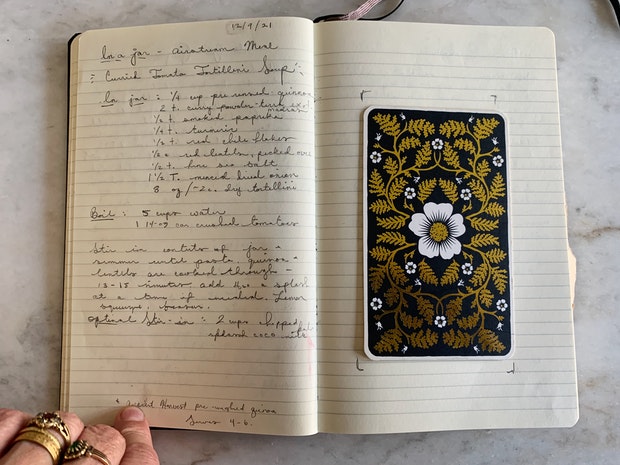 12/9/21
In a jar - Airstream Meal
Curried Tomato Tortellini Soup
In jar : 1/4 cup pre rinsed quinoa
2 t. curry powder -
madras
1/2 t smoked paprika
1/4 t. turmeric
1/2 t. red chile flakes
red lentils, picked over
1/2 t. fine sea salt
1 1/2 T. minced dried onion
8 oz /-2c. dry tortellini
Boil : 5 cups water
1 14-oz can crushed tomatoes
Stir in contents of jar -
simmer until pasta, quinoa -
lentils are cooked through -
13-15 minutes add H2O a splash
at a time if needed. Lemon
squeeze
optional Stir-in : 2 cups chopped
splash coco milk
* Ancient Harvest pre-washed quinoa
Serves 4-6.